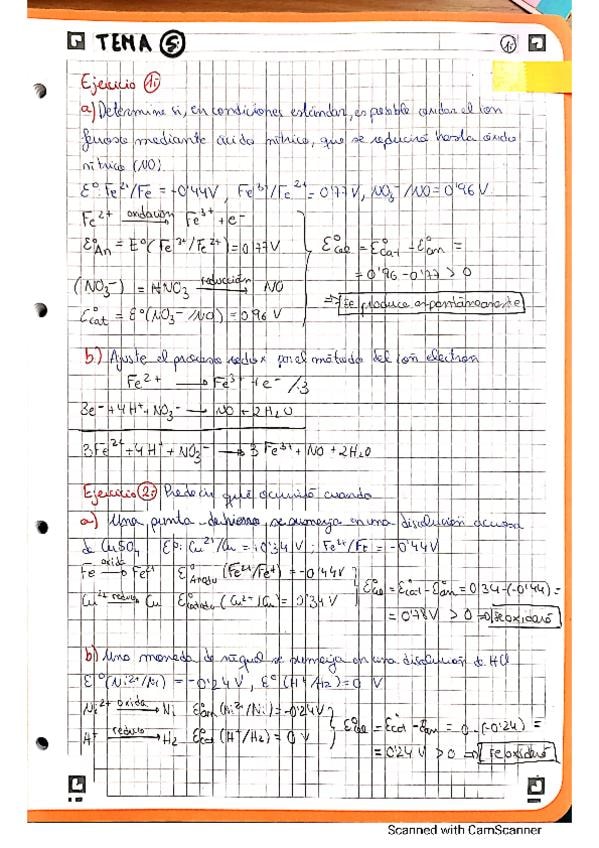 TEMA 5
1.
Ejercicio 1:
a) Determine si, en condiciones estándar, es posible oxidar el ion
ferroso mediante ácido nítrico, que se reducirá hasta óxido
nítrico (NO).
E°: Fe²⁺/Fe = -0'44V, Fe³⁺/Fe²⁺ = 0'77V, NO₃⁻/NO = 0'96 V.
Fe²⁺ oxidación → Fe³⁺ + e⁻
E°An = E°(Fe³⁺/Fe²⁺) = 0'77V
(NO₃⁻) = HNO₃ reducción → NO
E°cat = E°(NO₃⁻/NO) = 0'96 V
E°cel = E°cat - E°an =
= 0'96 - 0'77 > 0
⇒ Se produce espontáneamente
b) Ajuste el proceso redox por el método del ion electron
Fe²⁺ → Fe³⁺ + e⁻ /·3
3e⁻ + 4H⁺ + NO₃⁻ → NO + 2H₂O
3Fe²⁺ + 4H⁺ + NO₃⁻ → 3Fe³⁺ + NO + 2H₂O
Ejercicio 2: Predecir qué ocurrirá cuando
a) Una punta de hierro, se sumerja en una disolución acuosa
de CuSO₄ E°: Cu²⁺/Cu = +0'34V, Fe²⁺/Fe = -0'44V
Fe oxida → Fe²⁺ E° (Fe²⁺/Fe) = -0'44V
Cu²⁺ reduce → Cu E° (Cu²⁺/Cu) = 0'34V
E°cel = E°cat - E°an = 0'34 - (-0'44) =
= 0'78V > 0 ⇒ Se oxidará
b) Una moneda de níquel se sumerja en una disolución de HCl
E°(Ni²⁺/Ni) = -0'24V, E°(H⁺/H₂) = 0 V
Ni²⁺ oxida → Ni E°an (Ni²⁺/Ni) = -0'24V
H⁺ reduce → H₂ E°cat (H⁺/H₂) = 0 V
E°cel = E°cat - E°an = 0 - (-0'24) =
= 0'24 V > 0 ⇒ Se oxidará
Scanned with CamScanner